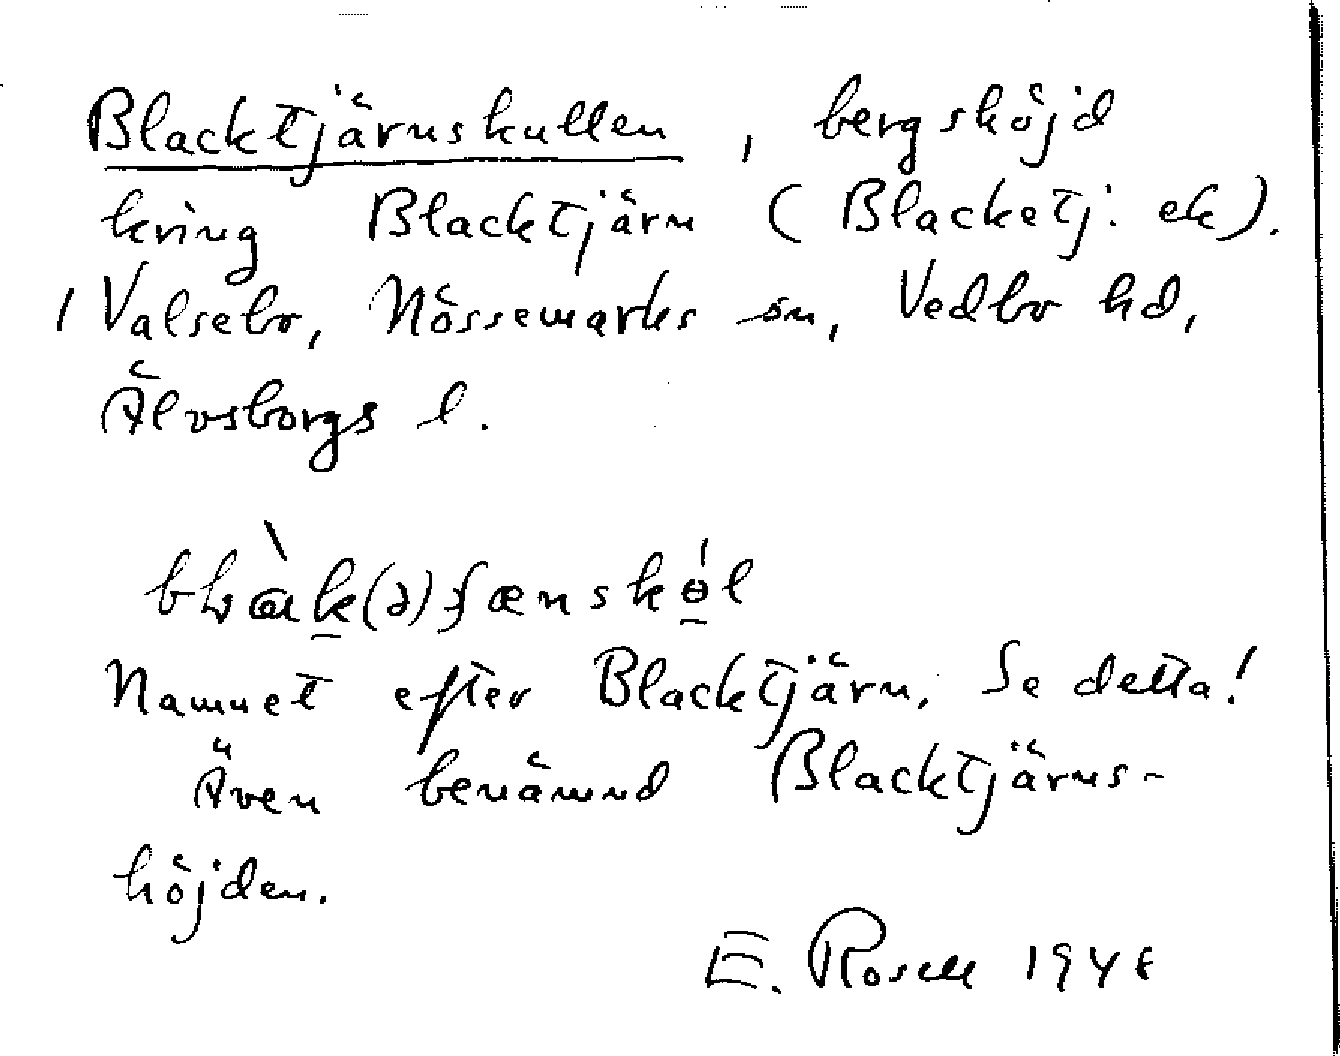 Blacktjärnskullen, bergshöjd
kring Blacktjärn (Blacketj. ek).
/ Valsebo, Nössemarks sn, Vedbo hd,
Älvsborgs l.
Namnet efter Blacktjärn. Se detta!
Även benämnd Blacktjärns-
höjden.
E. Rosell